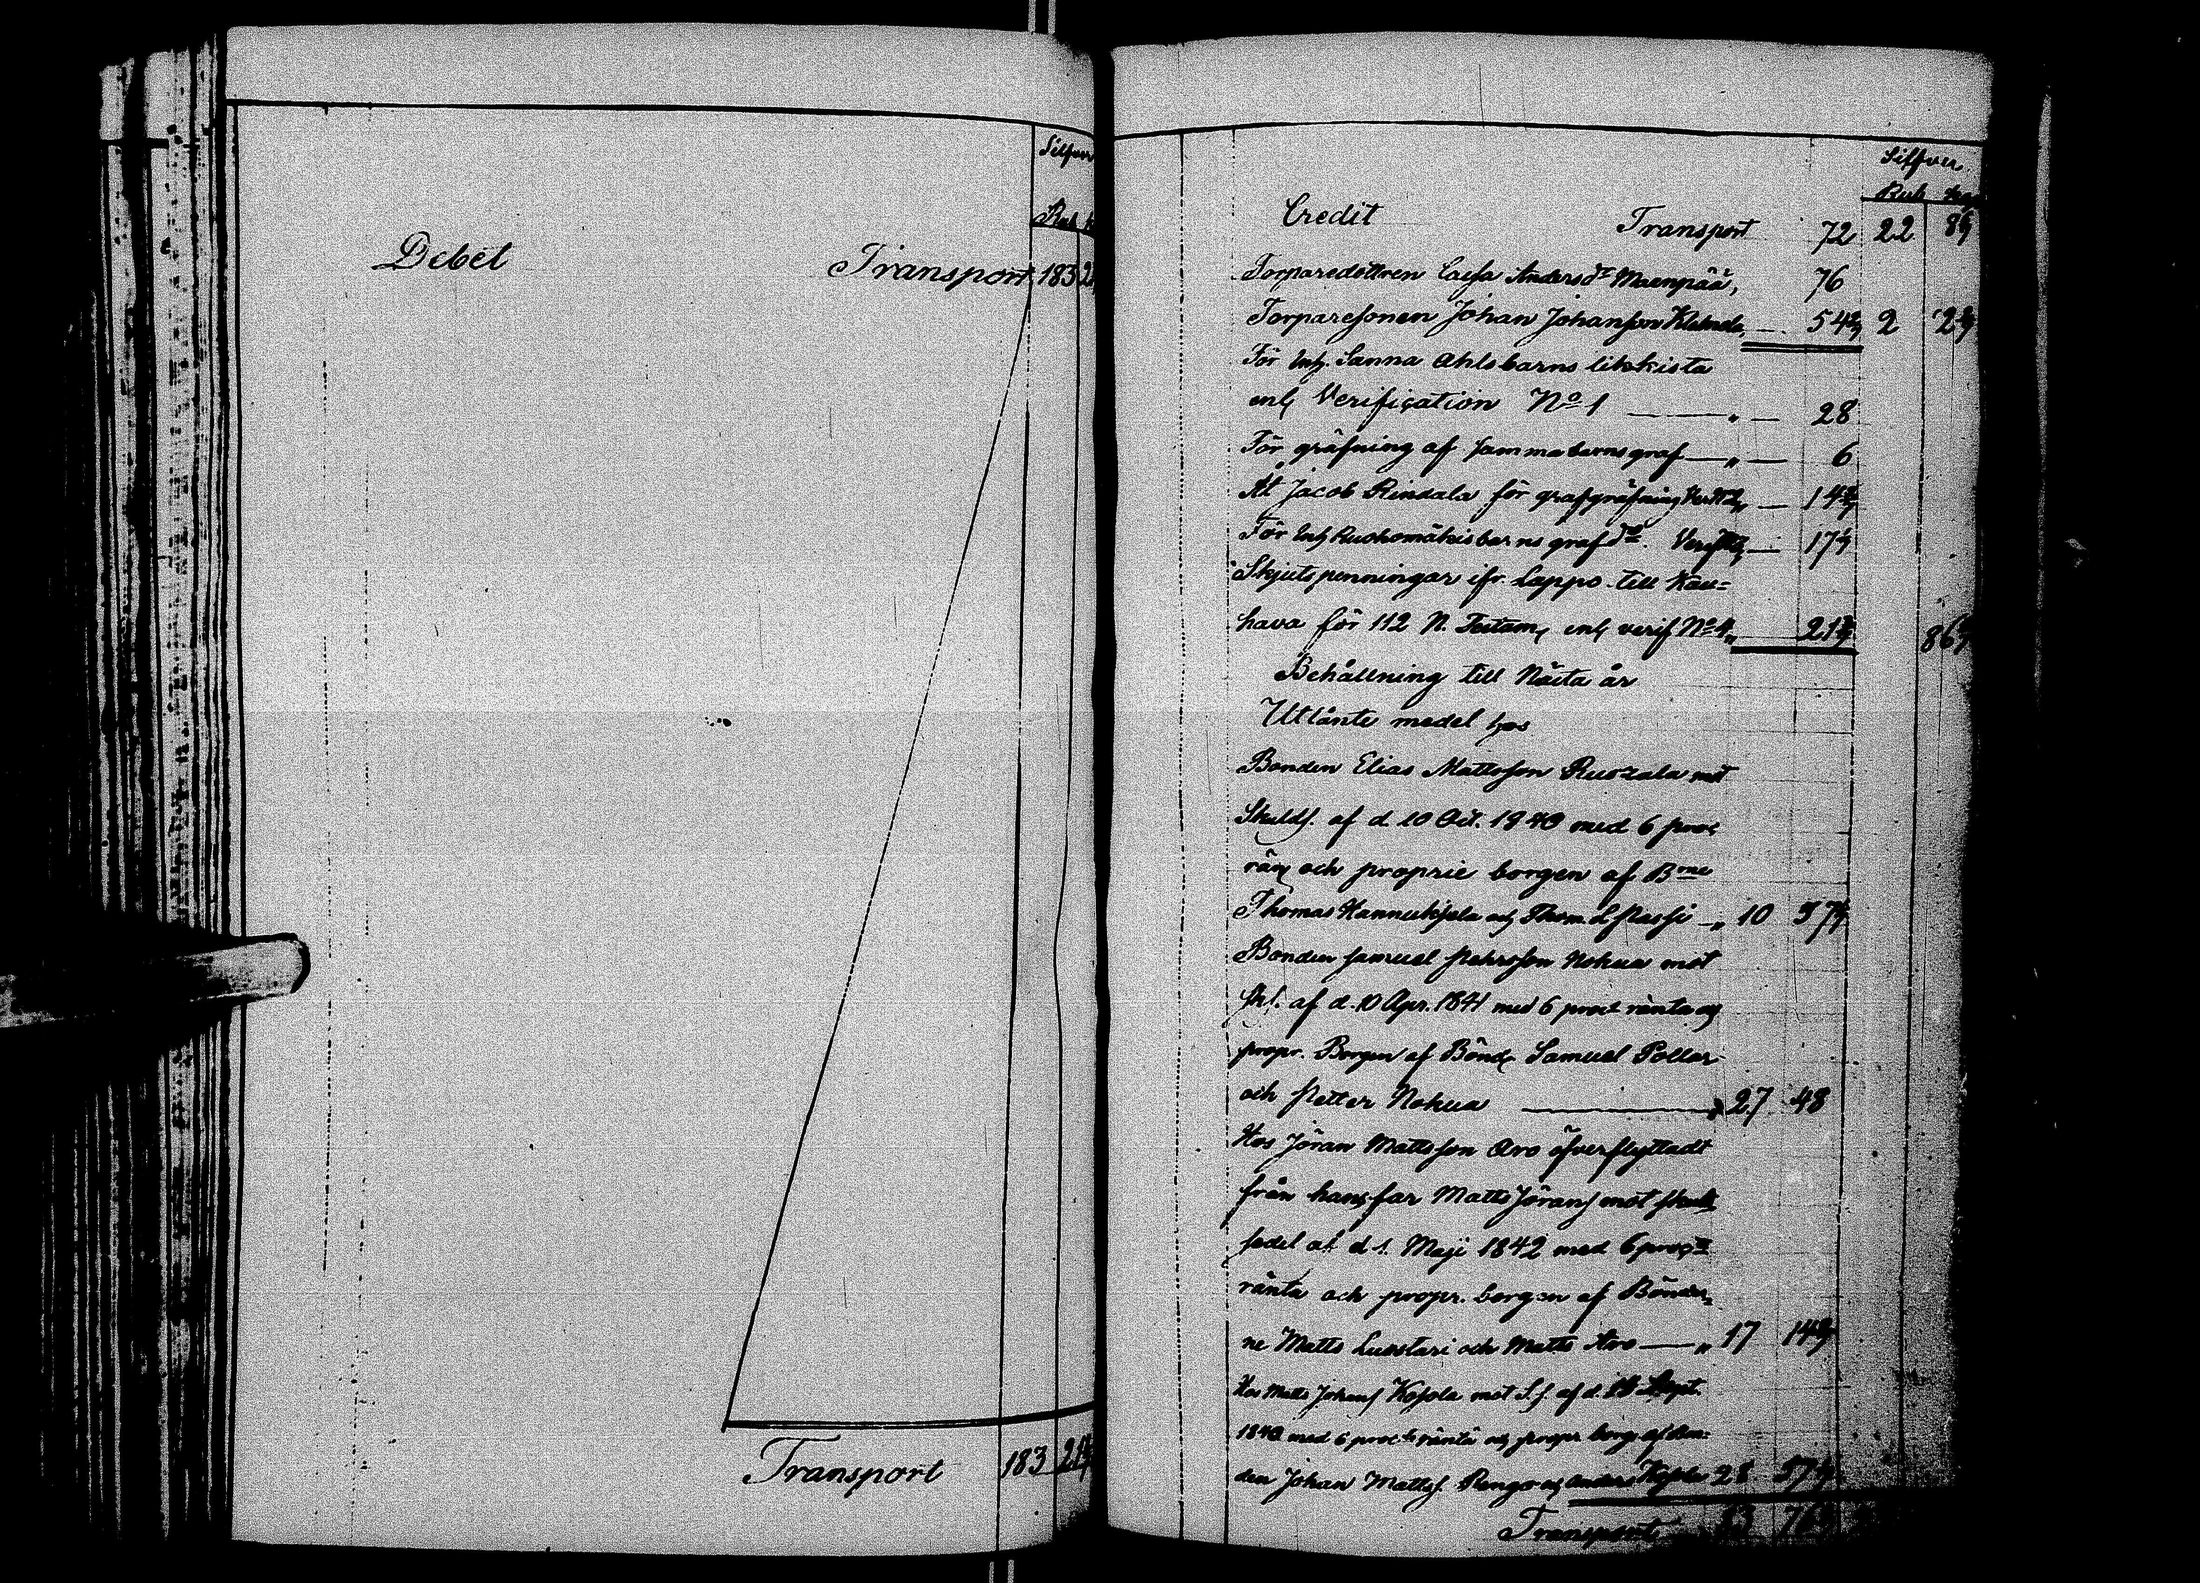 Silfver
Rub. k
Debet Transport 183 21
Transport 183 21 4/7
Silfver
Rub kop
Credit Transport 72 22 8 4/7
Torparedottren Cajsa Andersdr Maenpää, 76
Torparesonen Johan Johansson Klemola, — 54 2/7 2 2 2/7
För Inh. Sanna Ahls barns likkista
enl. Verification No 1 — " — 28
För gräfning af samma barns graf — " — 6
Åt Jacob Rindala för grafgräfning " — 14 2/7
För Inh Ruohomäkis barns graf do. — 17 1/7
Skjutspenningar ifr. Lappo till Kau-
hava för 112 N. Testam, enl verif No 4 " 21 86
Behållning till Nästa år
Utlånte medel hos
Bonden Elias Mattsson Ruozala mot
Skulds. af d. 10 Oct. 1840 med 6 proc
rän och proprie borgen af Bne
Thomas Hannuksela och Thom. — " 10 57 1/7
Bonden Samuel Pehrsson Nohua mot
Sks. af d. 10 Apr. 1841 med 6 proct ränta och
propr. Borgen af Bönd. Samuel Pollar
och Petter Nohua — " 27 48
Hos Jöran Mattsson Aro öfverflyttadt
från hans far Matts Jörans mot skuld
sedel af d 1. Maji 1842 med 6 proct
ränta och propr. borgen af Bönder-
ne Matts Luostari och Matts Aro — " 17 14 2/7
Hos Matts Johans Kojola mot S.s. af d. Sept.
1840 med 6 procts ränta och propr borg. af Bon-
den Johan Mattss. Rengo och Anders Kojola 28 57 1/7
Transport 83 76